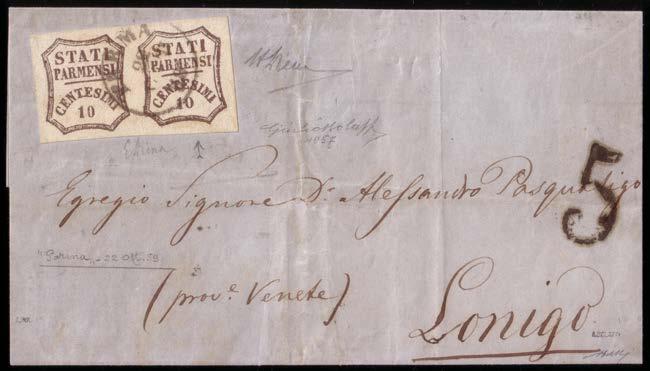 STATI
PARMENSI
CENTESIMI
10
STATI
PARMENSI
CENTESIMI
10
PARMA
5
Egregio Signore Dr. Alessandro Pasqualigo
"Parma" - 22 Ott. 59
(prov.e Venete)
Lonigo